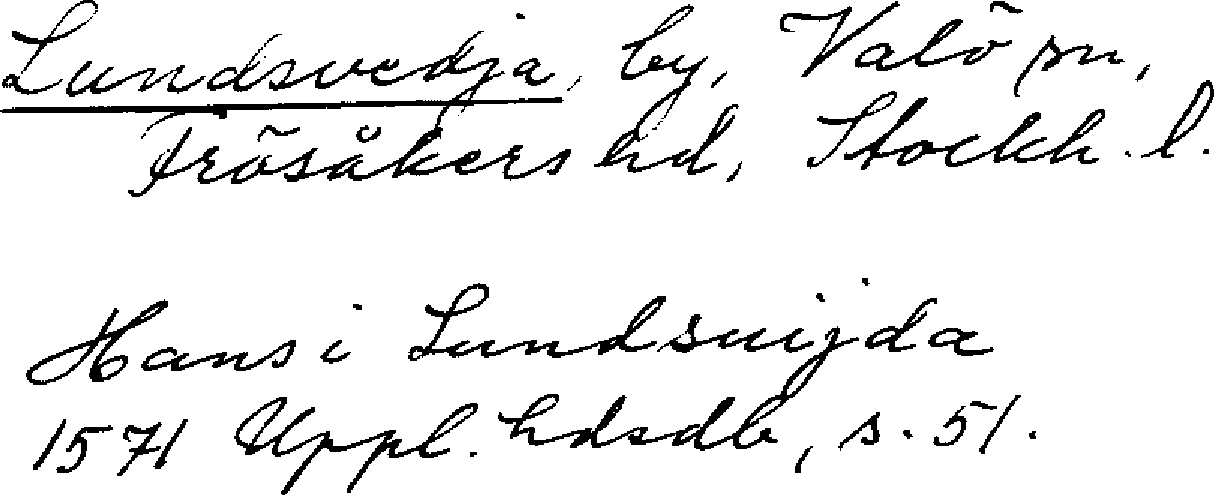 Lundsvedja, by, Valö sn,
Frösåkers hd, Stockh. l.
Hans i Lundsuijda
1571 Uppl. hdsdb, s. 51.